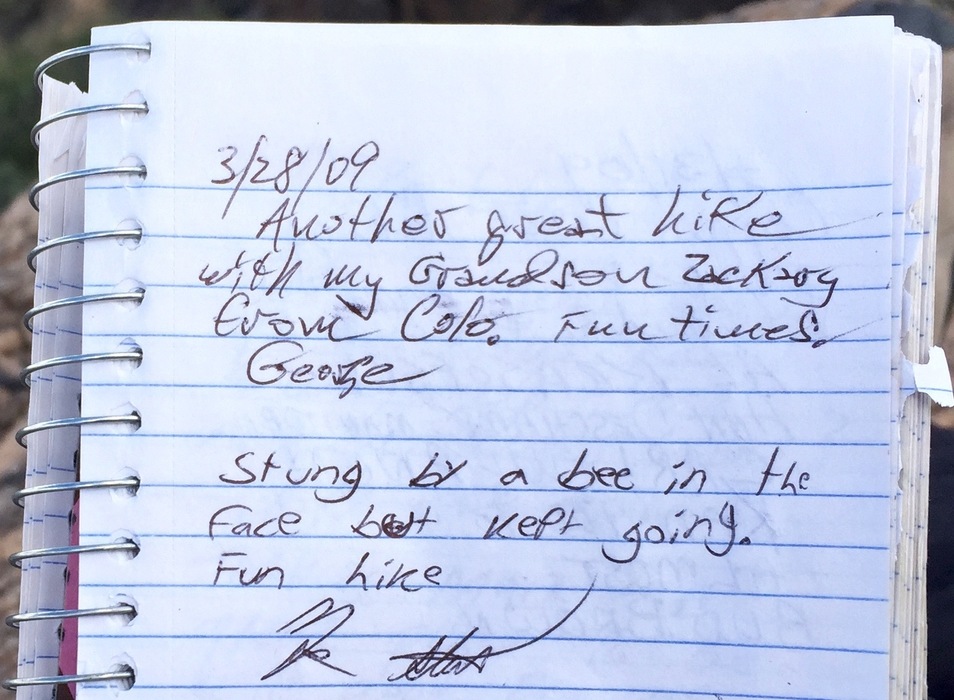 3/28/09
Another great hike
with my Grandson Zackary
from Colo. Fun times.
George
Stung by a bee in the
Face but kept going.
Fun hike